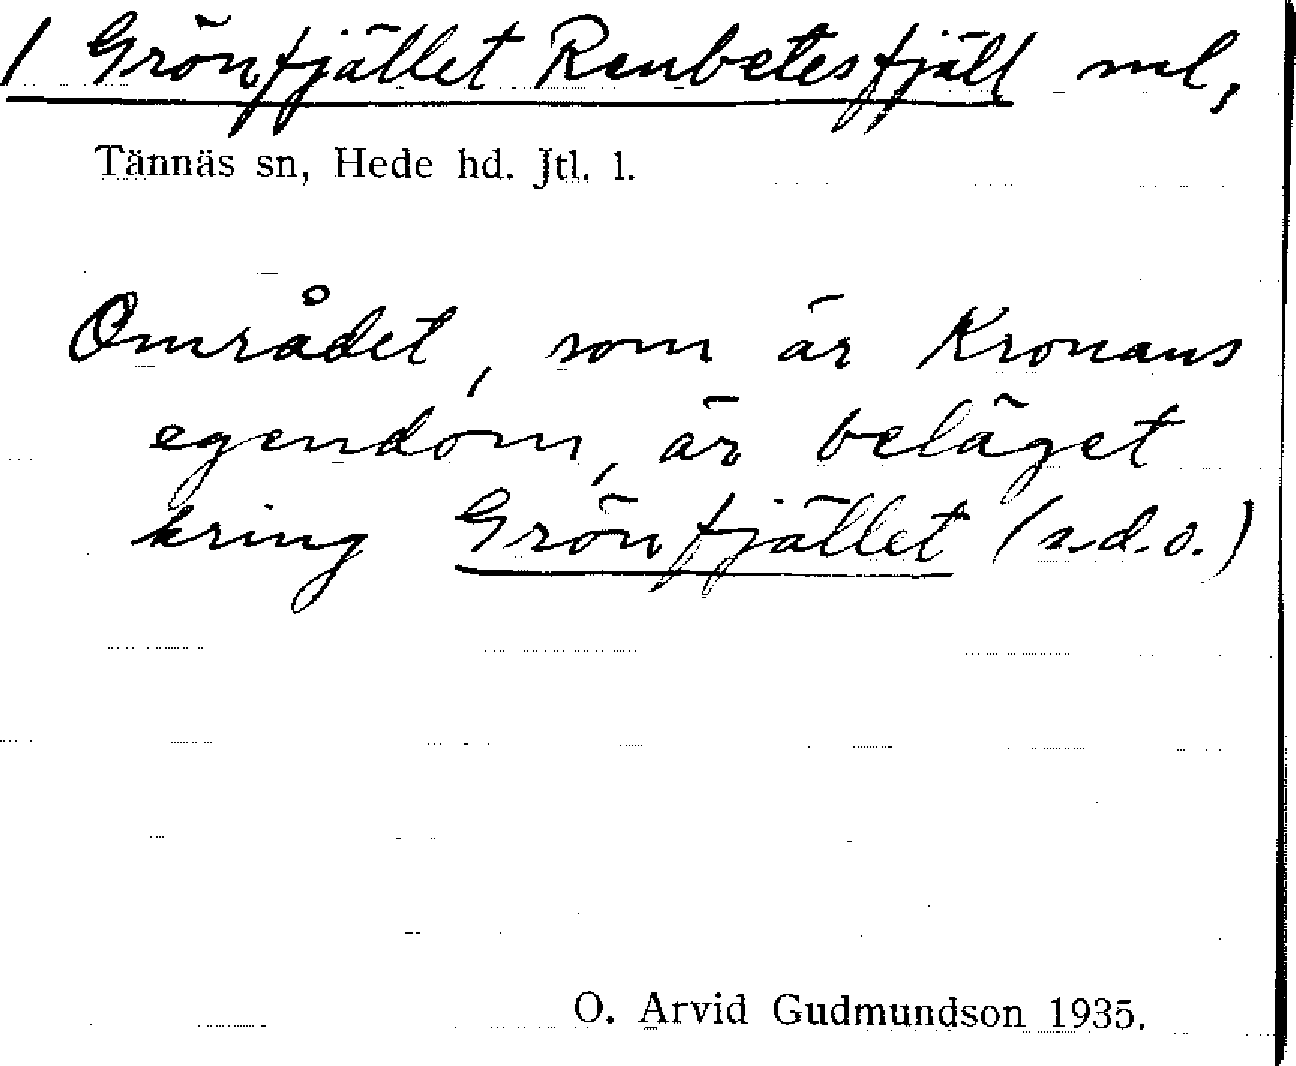 / Grönfjället Renbetesfjäll ml,
Tännäs sn, Hede hd. Jtl. l.
Området, som är Kronans
egendom, är beläget
kring Grönfjället (s.d.o.)
O. Arvid Gudmundson 1935.